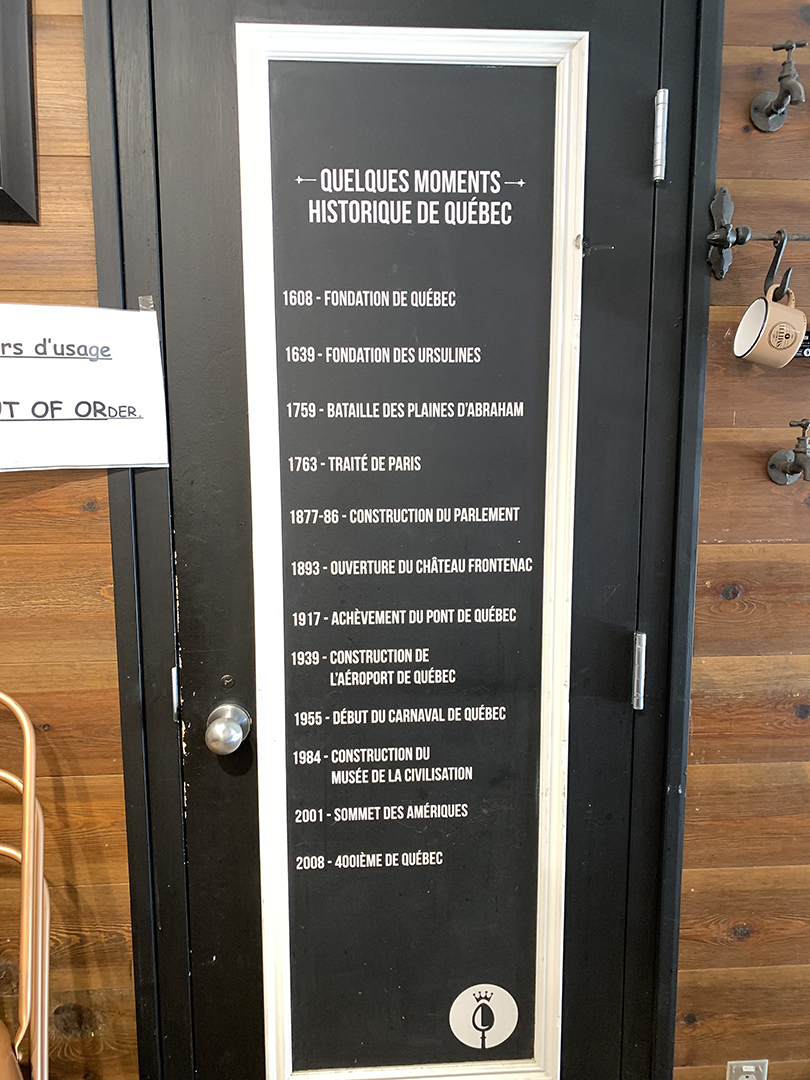 QUELQUES MOMENTS
HISTORIQUE DE QUÉBEC
1608 - FONDATION DE QUÉBEC
1639 - FONDATION DES URSULINES
1759 - BATAILLE DES PLAINES D'ABRAHAM
1763 - TRAITÉ DE PARIS
1877-86 - CONSTRUCTION DU PARLEMENT
1893 - OUVERTURE DU CHÂTEAU FRONTENAC
1917 - ACHÈVEMENT DU PONT DE QUÉBEC
1939 - CONSTRUCTION DE
L'AÉROPORT DE QUÉBEC
1955 - DÉBUT DU CARNAVAL DE QUÉBEC
1984 - CONSTRUCTION DU
MUSÉE DE LA CIVILISATION
2001 - SOMMET DES AMÉRIQUES
2008 - 400IÈME DE QUÉBEC
rs d'usage
UT OF ORDER.
SMITH